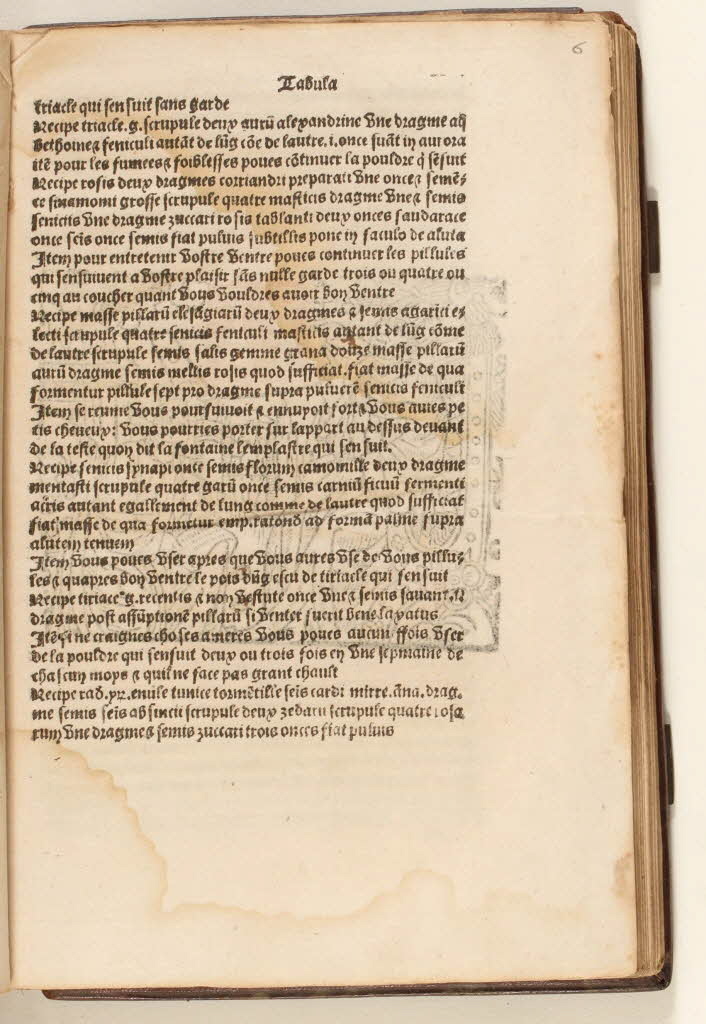 6
Tabula
triacle qui sensuit sans garde
Recipe triacle. g. scrupule deux aurū alexandrine Vne dragme aq̄
bethoine & feniculi autāt de lūg cōe de lautre. i. once suāt in aurora
itē pour les fumees & foiblesses poues cōtinuer la pouldre q̄ sēsuit
Recipe rosis deux dragmes corriandri preparati Vne once & semē⸗
ce sinamomi grosse scrupule quatre masticis dragme Vne & semis
seniciis Vne dragme zuccari rosis tablanti deux onces saudarace
once seīs once semis fiat puluis subtillis pone in saculo de aluta
Item pour entretenir Vostre Ventre poues continuer les pillules
qui sensuiuent a Vostre plaisir sās nulle garde trois ou quatre ou
cinq au coucher quant Vous Vouldres auoir bon Ventre
Recipe masse pillarū elesagiarū deux dragmes & semis agarici e⸗
lecti scrupule quatre senicis feniculi masticis autant de lūg cōme
de lautre scrupule semis salis gemme grana douze masse pillarū
aurū dragme semis mellis rosis quod sufficiat. fiat masse de qua
formentur pillule sept pro dragme supra puluerē senicis feniculi
Item se reume Vous poursuiuoit & ennuyoit fort & Vous auies pe
tis cheueux: Vous pourries porter sur lappart au dessus deuant
de la teste quon dit la fontaine lemplastre qui sensuit.
Recipe senicis synapi once semis florum camomille deux dragme
mentasti scrupule quatre garū once semis carniū ficuū fermenti
acris autant egallement de lung comme de lautre quod sufficiat
fiat masse de qua formetur emp. ratond ad formā palme supra
alutem tenuem
Item Vous poues Vser apres que Vous aures Vse de Vous pillu⸗
les & quapres bon Ventre le pois dūg escu de tiriacle qui sensuit
Recipe tiriace g. recentis & non Vestute once Vne & semis sauant.
dragme post assūptionē pillarū si Venter fuerit bene lapatus
Itē si ne craignes choses ameres Vous poues aucun ffois Vser
de la pouldre qui sensuit deux ou trois fois en Vne sepmaine de
chascun moys & quil ne face pas grant chault
Recipe rad. yrr. enule tunice tormētille seīs cardi mirre. āna. drag⸗
me semis seīs absincii scrupule deux zedarii scrupule quatre rosa
rum Vne dragme & semis zuccari trois onces fiat puluis